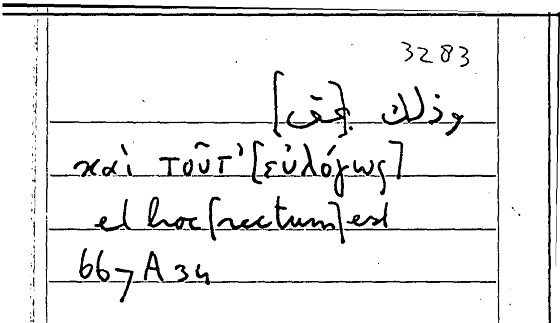 3283
وذلك [بحق]
καὶ τοῦτ' [εὐλόγως]
et hoc [rectum] est
667 A 34